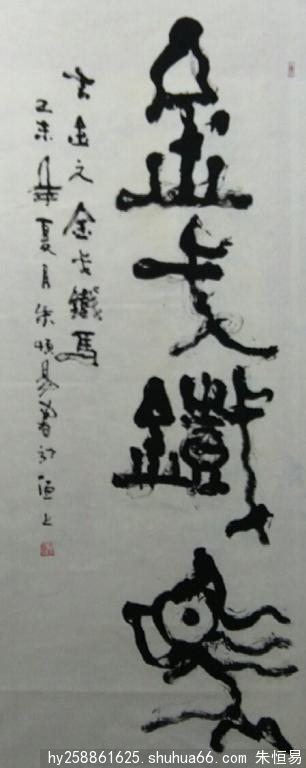 金戈鐵馬
古金文金戈鐵馬
乙未年夏月朱恒易書於滬上
hy258861625.shuhua66.com 朱恒易